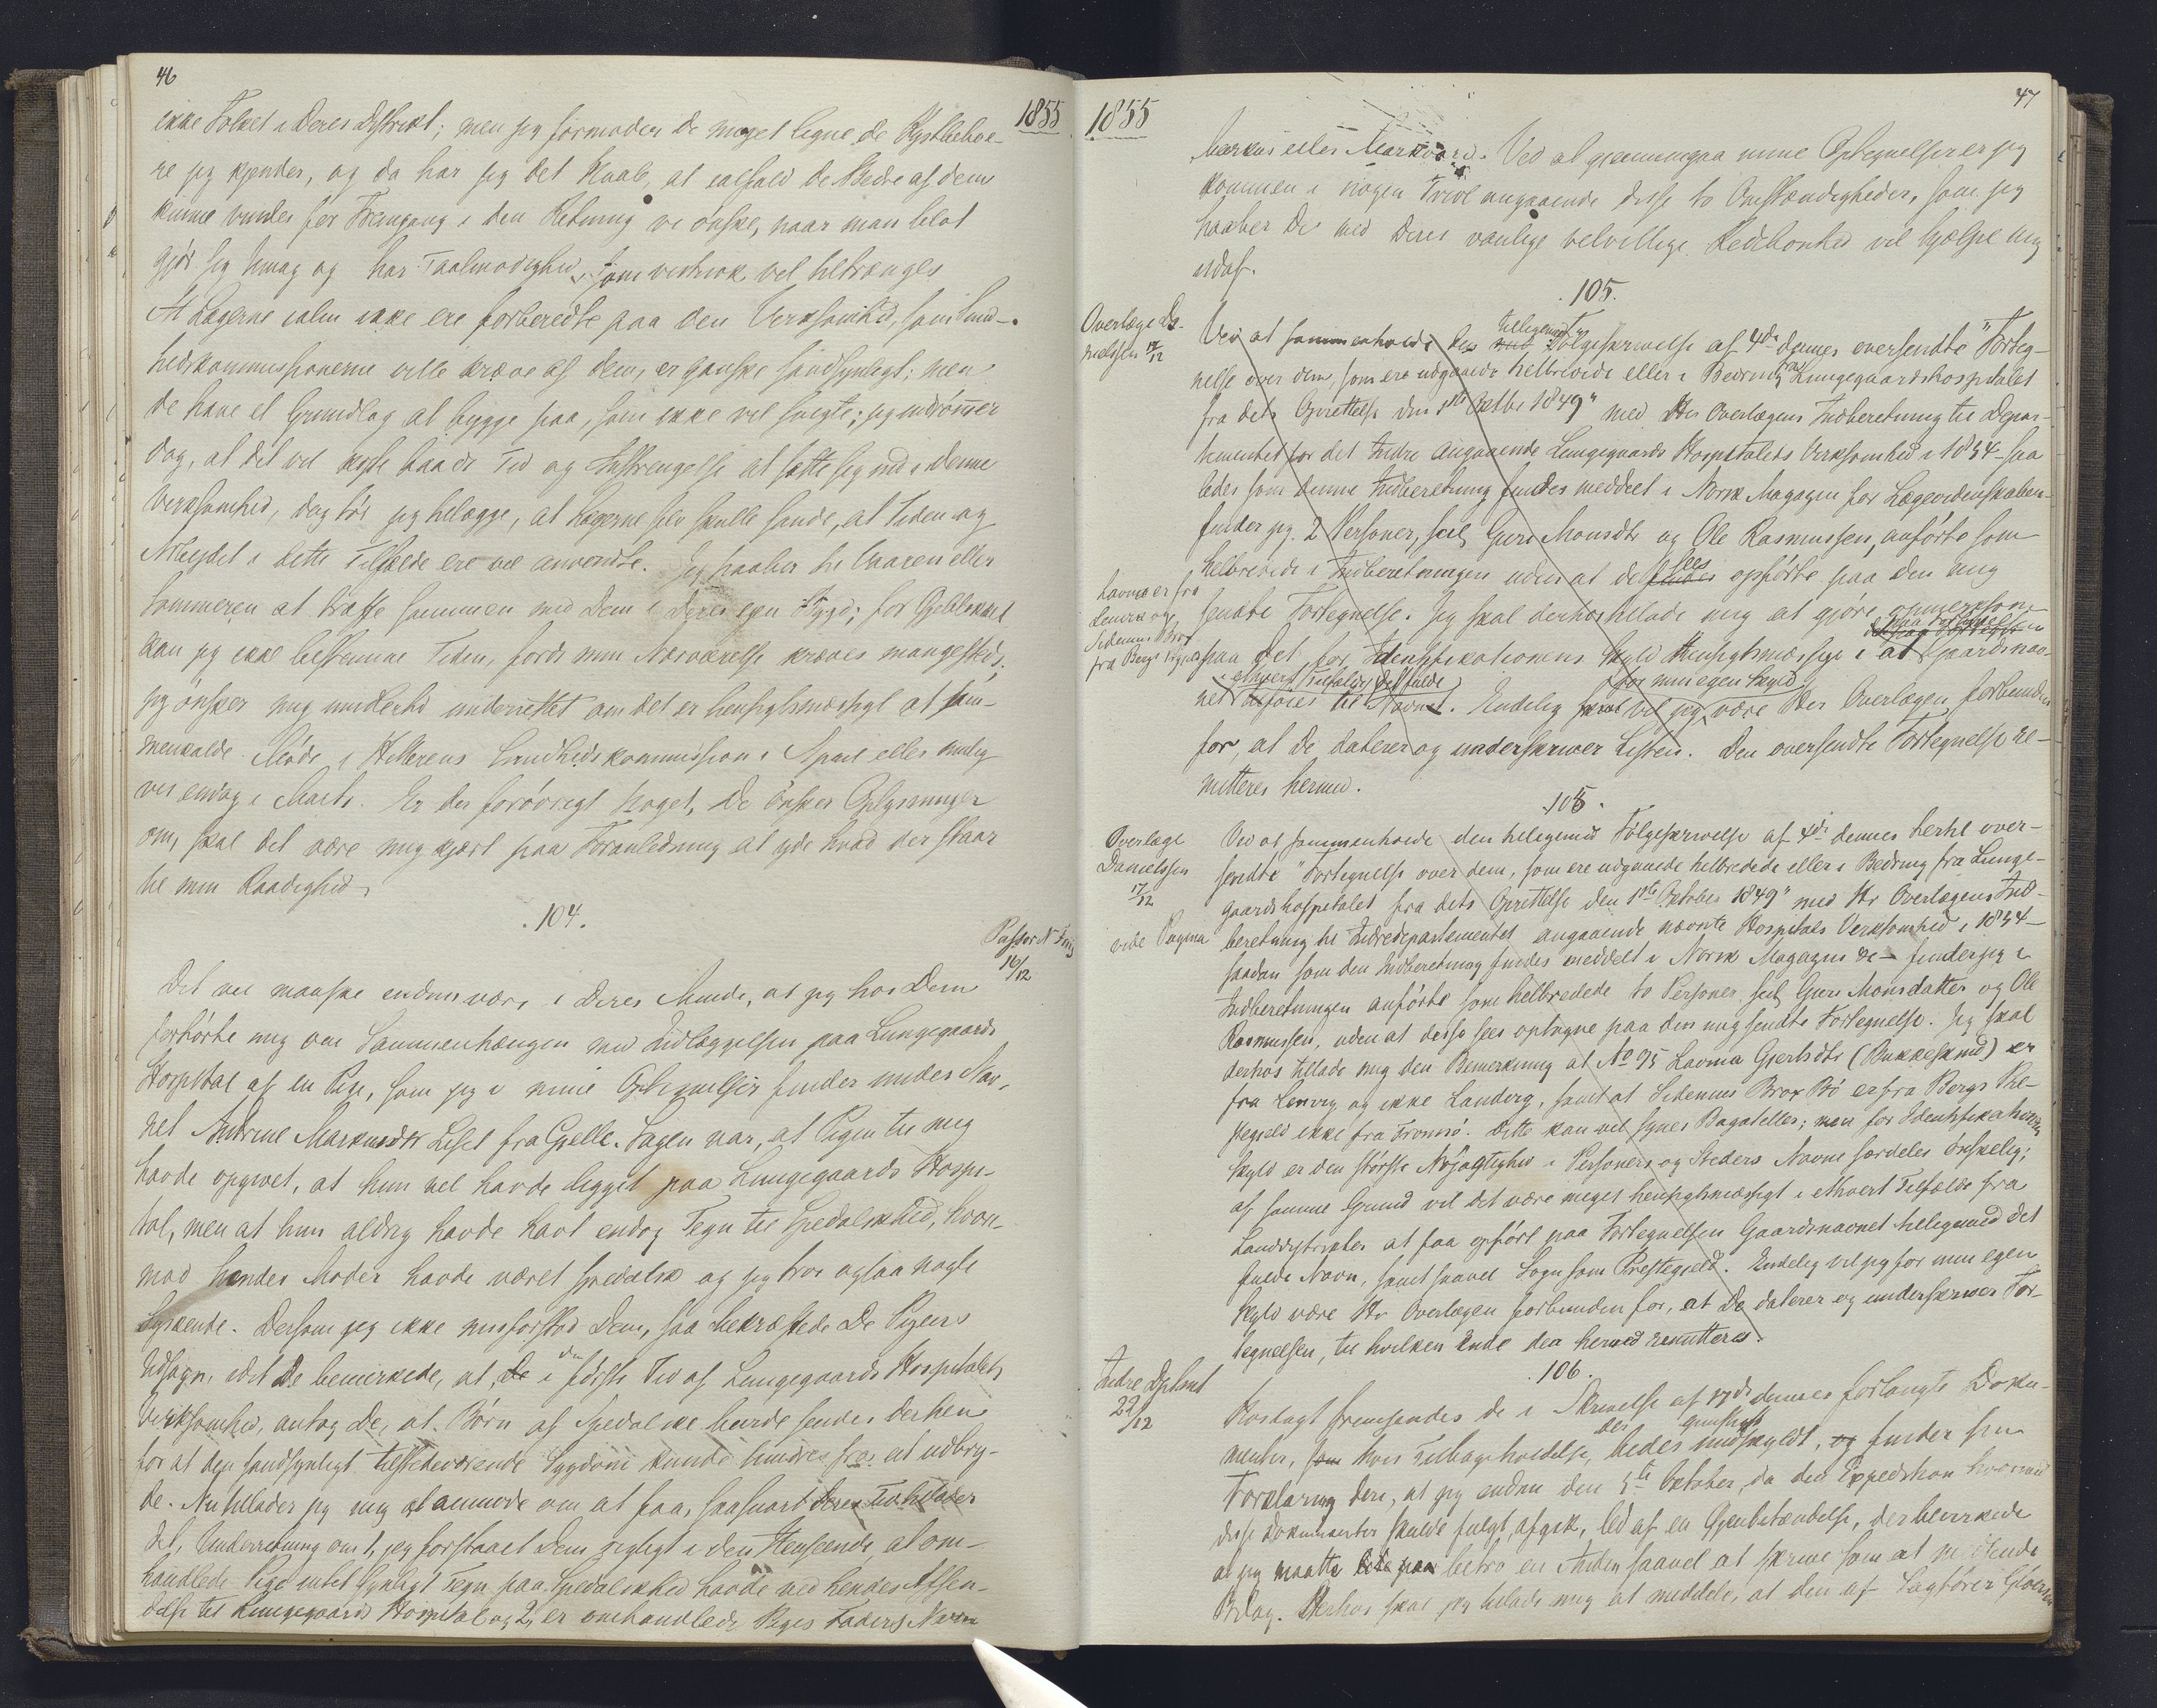 46
1855
ikke Folket i Deres Distrikt; men jeg formoder de meget ligne de Kystbeboe-
re jeg kjender, og da har jeg det Haab, at ialfald de Bedre af dem
kunne vindes for Fremgang i den Retning vi ønske, naar man blot
gjør sig Umag og har Taalmodighed, som vistnok vel behøves
At Lægerne ialm ikke ere forberedte paa den Virksomhed, som Sund-
hedskommissionerne ville kræve af dem, er ganske sandsynligt; men
de have et Grundlag at bygge paa, som ikke vil svigte; jeg indrømmer
dog, at det vil koste baade Tid og Anstrengelse at sætte sig ind i denne
Virksomhed, dog tør jeg tilegge, at Lægerne selv skulle sande, at Tiden og
Arbejdet i dette Tilfælde ere vel anvendte. Jeg haaber til Vaaren eller
Sommeren at træffe sammen med Dem i Deres egen Bygd; for Øieblikket
kan jeg ikke bestemme Tiden, fordi min Nærværelse kræves mangesteds;
jeg ønsker mig imidlertid underrettet om det er hensigtsmæssigt at sam-
menkalde Møde i Sundhedskommission i April eller mulig
vis endog i Marts. Er der forøvrigt Noget, De ønsker Oplysninger
om, skal det være mig kjært paa Foranledning at yde hvad der staar
til min Raadighed
.104.
Pastor N Friis
16/12
Det vil maaske endnu være i Deres Minde, at jeg hos Dem
forhørte mig om Sammenhængen med Indlæggelsen paa Lungegaards
Hospital af en Pige, som jeg i mine Optegnelser finder under Nav-
net Andrine Markusdtr Liset fra Gjelle. Sagen var, at Pigen til mig
havde opgivet, at hun vel havde ligget paa Lungegaards Hospi-
tal, men at hun aldrig havde havt endog Tegn til Spedalskhed, hvor-
mod hendes Moder havde været spedalsk og jeg tror ogsaa nogle
Syskende. Dersom jeg ikke misforstod Dem, saa bekræftede De Pigens
Udsagn, idet De bemærkede, at, de i den første Tid af Lungegaards Hospitalets
Virksomhed, antog De, at Børn af Spedalske burde sendes derhen
for at den sandsynligt tilstedeværende Sygdom kunde hindres fra at udbry-
de. Nu tillader jeg mig at anmode om at faa, saasnart Deres Tid tillader
det, Underretning om 1, jeg forstaaet Dem rigtigt i den Henseende, at om-
handlede Pige intet synligt Tegn paa Spedalskhed havde ved hendes Afsen-
delse til Lungegaards Hospital og 2, er omhandlede Piges Faders Navn
47
1855
Markus eller Markvard. Ved at gjennemgaa mine Optegnelser er jeg
kommen i nogen Tvivl angaaende disse to Omstændigheder, som jeg
haaber De med Deres vanlige velvillige Redebonhed vil hjælpe mig
udaf.
.105.
Overlæge Da-
nielssen 17/12
Ved at sammenholde den med tilligemed Følgeskrivelse af 4de dennes oversendte "Forteg-
nelse over dem, som ere udgaaede helbredede eller i Bedring fra Lungegaardshospitalet
fra dets Oprettelse den 1ste Octbr 1849" med Hr Overlægens Indberetning til Depar-
tementet for det Indre angaaende Lungegaards Hospitalets Virksomhed i 1854 saa
ledes som denne Indberetning findes meddelt i Norsk Magazin for Lægevidenskaben-
finder jeg 2 Personer, scil Guri Monsdtr og Ole Rasmussen, anførte som
helbredede i Indberetningen uden at de findes sees opførte paa den mig
Lavina er fra
Lenvik og
Sidenius Brox
fra Bergs Prgjeld
sendte Fortegnelse. Jeg skal derhos tillade mig at gjøre opmærksom
paa det for Identifikationens Skyld Hensigtsmæssige i at paa Fortegnelsen Gaardsnav-
net i ethvert Tilfælde tilføies til det fulde Navn. Endelig skal vil jeg for min egen Skyld være Hr Overlægen forbunden
for, at De daterer og underskriver Listen. Den oversendte Fortegnelse re-
mitteres hermed.
.105.
Overlæge
Danielssen
17/12
vide Pagina
Ved at sammenholde den tilligemed Følgeskrivelse af 4de dennes hertil over-
sendte "Fortegnelse over dem, som ere udgaaede helbredede eller i Bedring fra Lunge-
gaardshospitalet fra dets Oprettelse den 1ste Oktober 1849" med Hr Overlægens Ind-
beretning til Indredepartementet angaaende nævnte Hospitals Virksomhed i 1854-
saadan som den Indberetning findes meddelt i Norsk Magazin &c - finder jeg i
Indberetningen anførte som helbredede to Personer scil Guri Monsdatter og Ole
Rasmussen, uden at disse sees optagne paa den mig sendte Fortegnelse. Jeg skal
derhos tillade mig den Bemerkning at No 95 Lavina Gjertsdtr (Bukkeskind) er
fra Lenvig og ikke Landvig, samt at Sidenius Brox Bø er fra Bergs Præ-
stegjeld ikke fra Tromsø. Dette kan vel synes Bagateller; men for Identifikationens
Skyld er den største Nøjagtighed i Personers og Steders Navne særdeles ønskelig;
af samme Grund vil det være meget hensigtsmæssigt i ethvert Tilfælde fra
Landdistrikter at faa opført paa Fortegnelsen Gaardsnavnet tilligemed det
fulde Navn, samt saavel Sogn som Prestegjeld. Endelig vil jeg for min egen
Skyld være Hr Overlægen forbunden for, at De daterer og underskriver For-
tegnelsen, til hvilken Ende den hermed remitteres.
.106.
Indre Dptmt
22/12
Hoslagt fremsendes de i Skrivelse af 17de dennes forlangte Doku-
menter, som hvis Tilbageholdelse, der bedes gunstigst undskyldt, og finder sin
Forklaring deri, at jeg endnu den 5te Oktober, da den Expedition hvormed
disse Dokumenter skulde fulgt, afgik, led af en Øjenbetændelse, der bevirkede
at jeg maatte betro en Anden saavel at skrive som at
Bilag. Derhos skal jeg tillade mig at meddele, at den af Sagfører